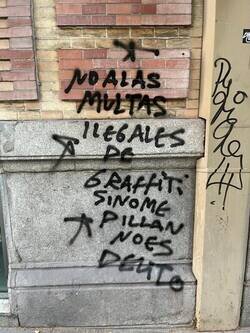 NO A LAS
MULTAS
ILEGALES
DE
GRAFFITI
SINOME
PILLAN
NOES
DELITO